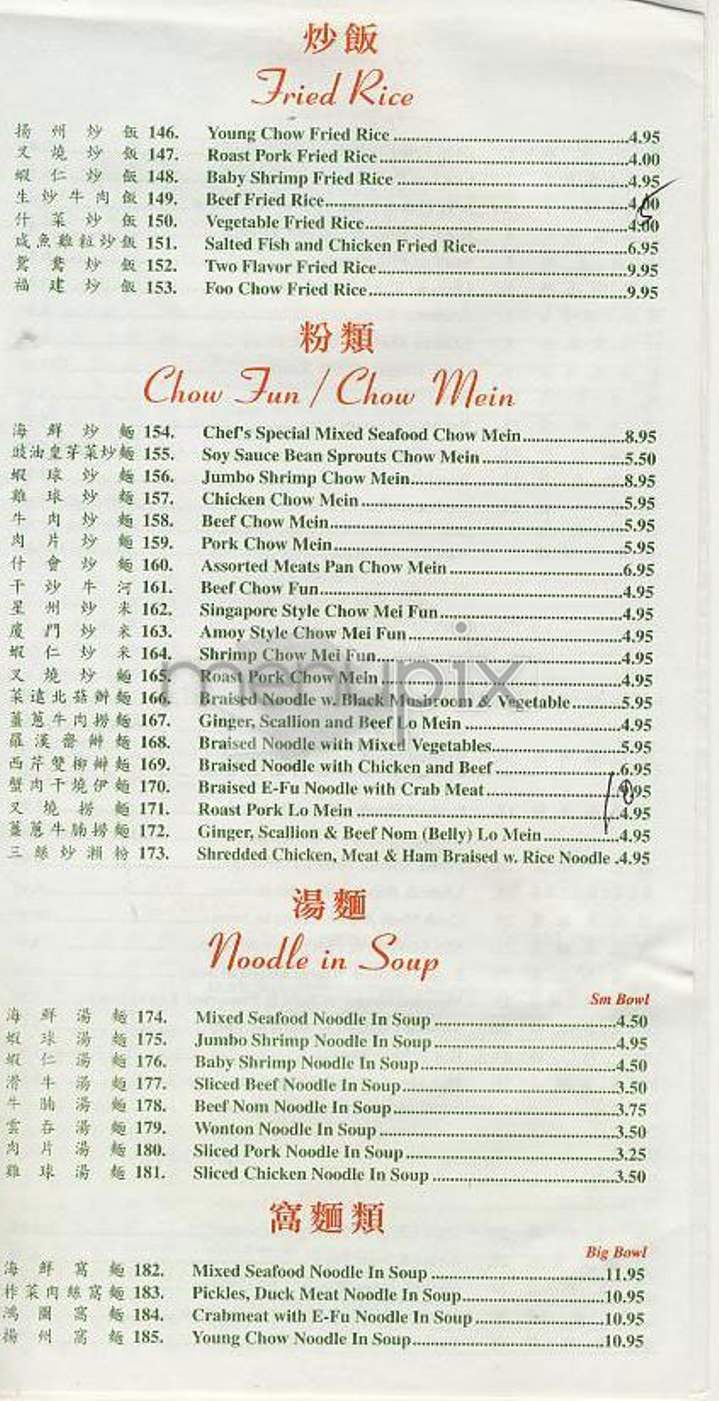 炒飯
Fried Rice
揚州炒飯 146. Young Chow Fried Rice 4.95
叉燒炒飯 147. Roast Pork Fried Rice 4.00
蝦仁炒飯 148. Baby Shrimp Fried Rice 4.95
生炒牛肉飯 149. Beef Fried Rice
什菜炒飯 150. Vegetable Fried Rice 4.00
咸魚雞粒炒飯 151. Salted Fish and Chicken Fried Rice 6.95
鴛鴦炒飯 152. Two Flavor Fried Rice 9.95
福建炒飯 153. Foo Chow Fried Rice 9.95
粉類
Chow Fun / Chow Mein
海鮮炒麵 154. Chef's Special Mixed Seafood Chow Mein 8.95
豉油皇芽菜炒麵 155. Soy Sauce Bean Sprouts Chow Mein 5.50
蝦球炒麵 156. Jumbo Shrimp Chow Mein 8.95
雞球炒麵 157. Chicken Chow Mein 5.95
牛肉炒麵 158. Beef Chow Mein 5.95
肉片炒麵 159. Pork Chow Mein 5.95
什會炒麵 160. Assorted Meats Pan Chow Mein 6.95
干炒牛河 161. Beef Chow Fun 4.95
星州炒米 162. Singapore Style Chow Mei Fun 4.95
廈門炒米 163. Amoy Style Chow Mei Fun 4.95
蝦仁炒米 164. Shrimp Chow Mei Fun 4.95
叉燒炒麵 165. Roast Pork Chow Mein 4.95
菜遠北菇辦麵 166. Braised Noodle w. Black Mushroom & Vegetable 5.95
薑蔥牛肉撈麵 167. Ginger, Scallion and Beef Lo Mein 4.95
羅漢齋辦麵 168. Braised Noodle with Mixed Vegetables 5.95
西芹雙柳辦麵 169. Braised Noodle with Chicken and Beef 6.95
蟹肉干燒伊麵 170. Braised E-Fu Noodle with Crab Meat
叉燒撈麵 171. Roast Pork Lo Mein 4.95
薑蔥牛腩撈麵 172. Ginger, Scallion & Beef Nom (Belly) Lo Mein 4.95
三絲炒瀨粉 173. Shredded Chicken, Meat & Ham Braised w. Rice Noodle .4.95
menupix
湯麵
Noodle in Soup
Sm Bowl
海鮮湯麵 174. Mixed Seafood Noodle In Soup 4.50
蝦球湯麵 175. Jumbo Shrimp Noodle In Soup 4.95
蝦仁湯麵 176. Baby Shrimp Noodle In Soup 4.50
滑牛湯麵 177. Sliced Beef Noodle In Soup 3.50
牛腩湯麵 178. Beef Nom Noodle In Soup 3.75
雲吞湯麵 179. Wonton Noodle In Soup 3.50
肉片湯麵 180. Sliced Pork Noodle In Soup 3.25
雞球湯麵 181. Sliced Chicken Noodle In Soup 3.50
窩麵類
Big Bowl
海鮮窩麵 182. Mixed Seafood Noodle In Soup 11.95
柞菜肉絲窩麵 183. Pickles, Duck Meat Noodle In Soup 10.95
鴻圖窩麵 184. Crabmeat with E-Fu Noodle In Soup 10.95
揚州窩麵 185. Young Chow Noodle In Soup 10.95